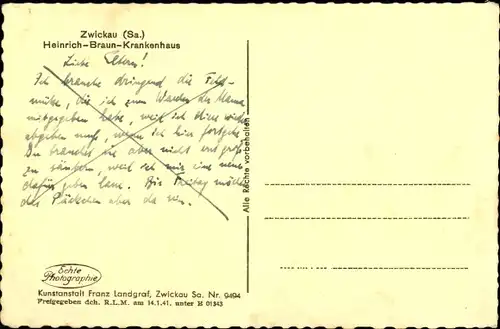 Zwickau (Sa.)
Heinrich-Braun-Krankenhaus
Liebe Eltern!
Ich brauche dringend die Feld-
mütze, die ich zum Waschen der Mama
mitgegeben habe, weil ich diese wieder
abgeben muß, wenn ich hier fortgehe.
Du brauchst sie aber nicht erst groß
zu säubern, weil ich mir eine neue
dafür geben lasse. Bis Freitag möchte
das Päckchen aber da sein.
Alle Rechte vorbehalten
Echte
Photographie
Kunstanstalt Franz Landgraf, Zwickau Sa. Nr. 9494
Freigegeben dch. R.L.M. am 14.1.41. unter H 01343